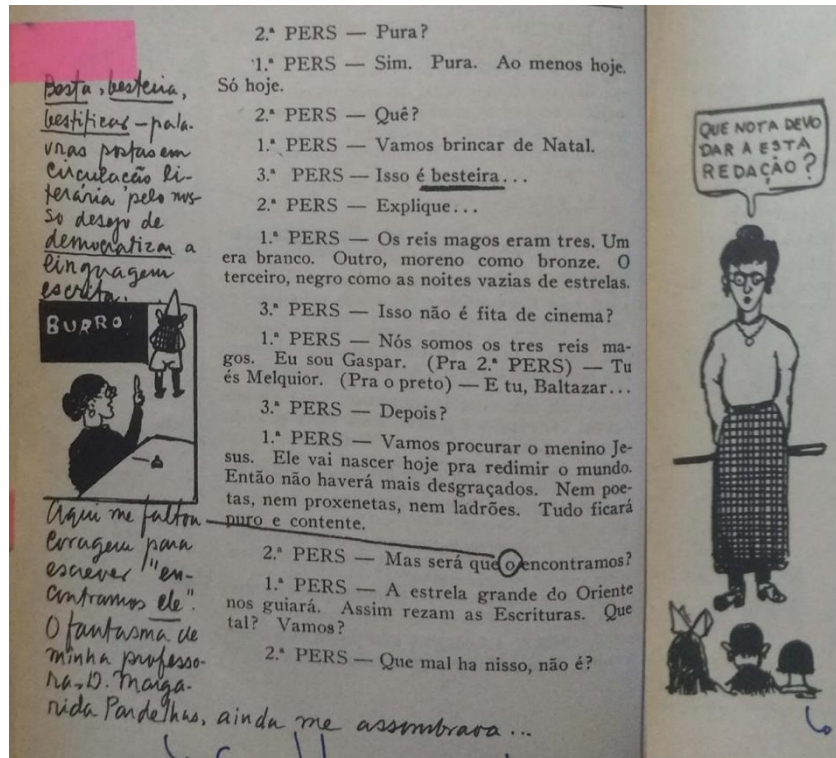 2.ª PERS — Pura?
1.ª PERS — Sim. Pura. Ao menos hoje.
Só hoje.
2.ª PERS — Quê?
1.ª PERS — Vamos brincar de Natal.
3.ª PERS — Isso é besteira...
2.ª PERS — Explique...
1.ª PERS — Os reis magos eram tres. Um
era branco. Outro, moreno como bronze. O
terceiro, negro como as noites vazias de estrelas.
3.ª PERS — Isso não é fita de cinema?
1.ª PERS — Nós somos os tres reis ma-
gos. Eu sou Gaspar. (Pra 2.ª PERS) — Tu
és Melquior. (Pra o preto) — E tu, Baltazar...
3.ª PERS — Depois?
1.ª PERS — Vamos procurar o menino Je-
sus. Ele vai nascer hoje pra redimir o mundo.
Então não haverá mais desgraçados. Nem poe-
tas, nem proxenetas, nem ladrões. Tudo ficará
puro e contente.
2.ª PERS — Mas será que o encontramos?
1.ª PERS — A estrela grande do Oriente
nos guiará. Assim rezam as Escrituras. Que
tal? Vamos?
2.ª PERS — Que mal ha nisso, não é?
Besta, besteira,
bestificar – pala-
vras postas em
circulação li-
terária pelo nos-
so desejo de
democratizar a
linguagem
escrita.
BURRO
Aqui me faltou
coragem para
escrever "en-
contramos ele".
O fantasma de
minha professo-
ra, D. Marga-
rida Pardelhas, ainda me assombrava...
QUE NOTA DEVO
DAR A ESTA
REDAÇÃO?